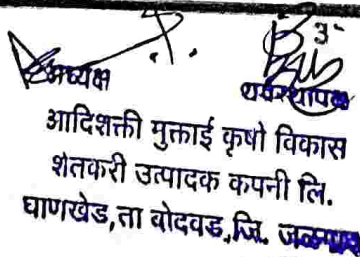 अध्यक्ष व्यवस्थापक
आदिशक्ती मुक्ताई कृषी विकास
शेतकरी उत्पादक कपनी लि.
घाणखेड,ता बोदवड,जि. जळगाव